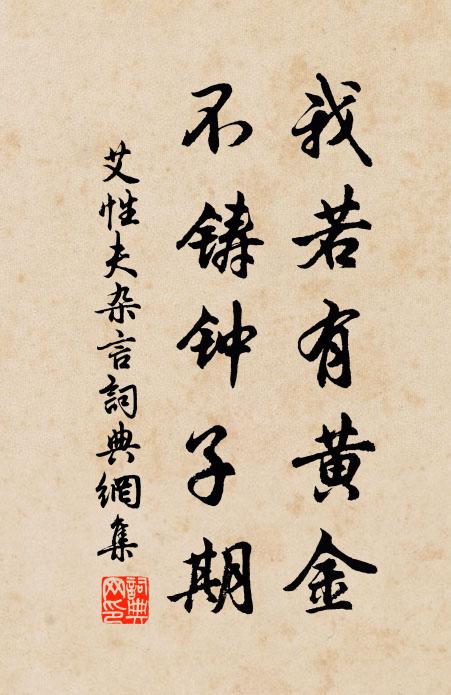 我若有黄金
不铸钟子期
艾性夫杂言詞典網集
詞典网印